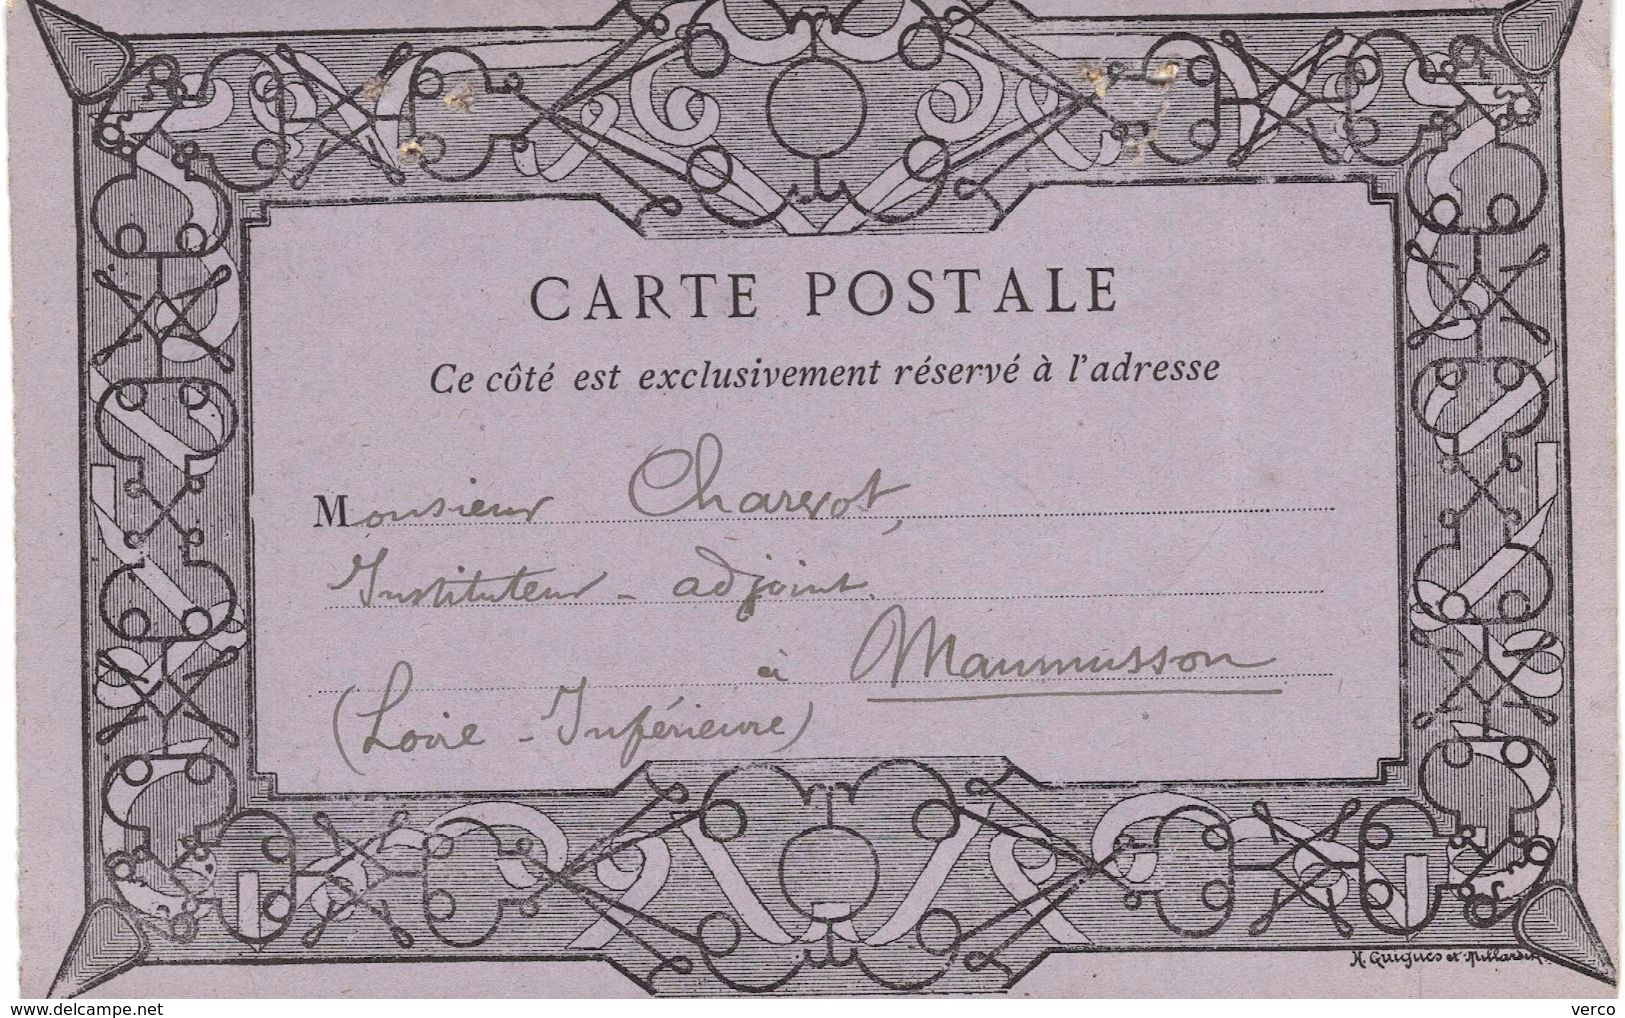 CARTE POSTALE
Ce côté est exclusivement réservé à l'adresse
Monsieur Charvot,
Instituteur - adjoint.
à Maumusson
(Loire - Inférieure)
delcampe.net
verco